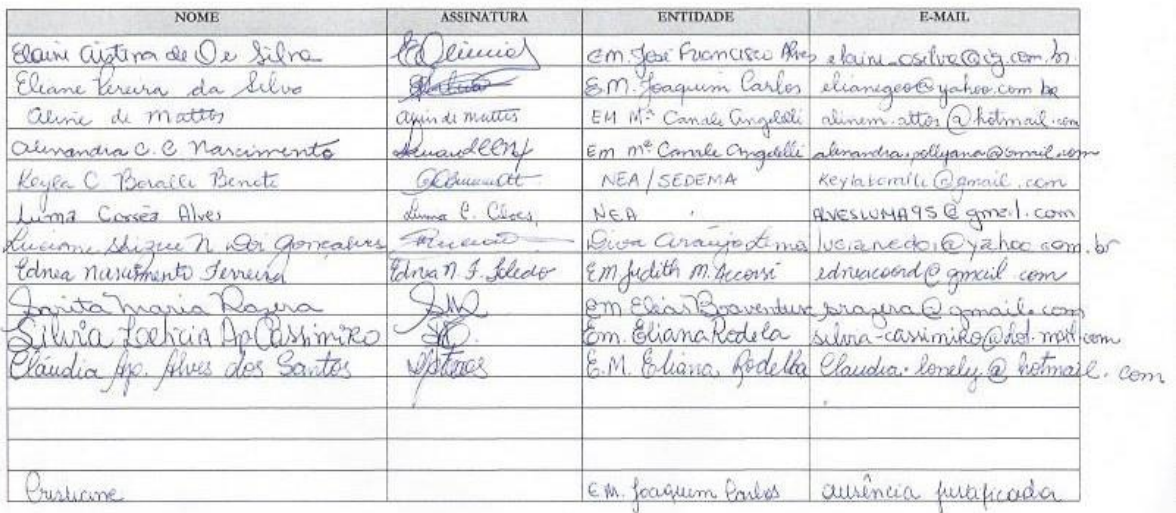 NOME ASSINATURA ENTIDADE E-MAIL
Elaini Cristina de Silva EM. José Francisco Alves elaini_osilva@ig.com.br
Eliane Pereira da Silva E.M. Joaquim Carlos elianegeo@yahoo.com.br
Aline de Mattos Aline de Mattos EM Mª Canale Angelelli alinem.attos@hotmail.com
Alexandra C. C Nascimento EM Mª Canale Angelelli alexandra.pollyana@gmail.com
Keyla C Boralli Beneti NEA / SEDEMA keylatomile@gmail.com
Luma Corrêa Alves Luma C. Alves NEA ALVESLUMA95@gmail.com
Luciane Shizue N. Doi Gonçalves Diva Araújo Lima lucianedoi@yahoo.com.br
Ednea Nascimento Ferreira Ednea N. F. Toledo EM Judith M. Accorsi edneacoord@gmail.com
Maria Razera EM Elias Boaventura srazera@gmail.com
Silvia Leticia Ap Cassimiro Em. Eliana Rodela silvia-cassimiro@hot.mail.com
Cláudia Ap. Alves dos Santos E.M. Eliana Rodella Claudia.lonely@hotmail.com
Cristiane EM. Joaquim Carlos ausência justificada